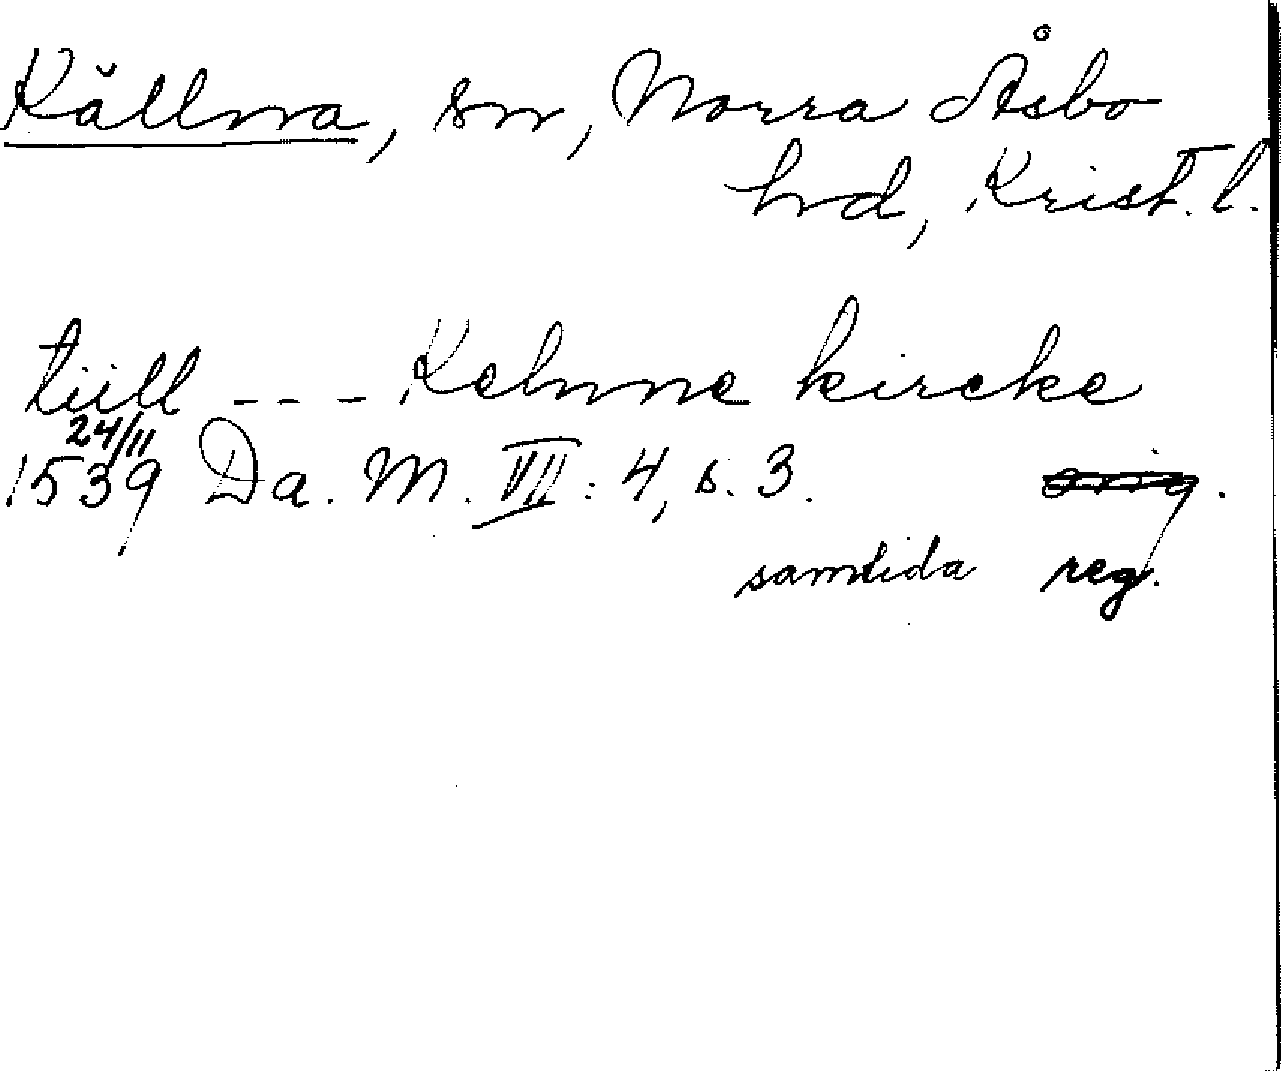 Källna, sn, Norra Åsbo
hd, Krist. l.
tiill --- Kelnne kircke
24/11
1539 Da. M. VII: 4, s. 3. orig.
samtida reg.